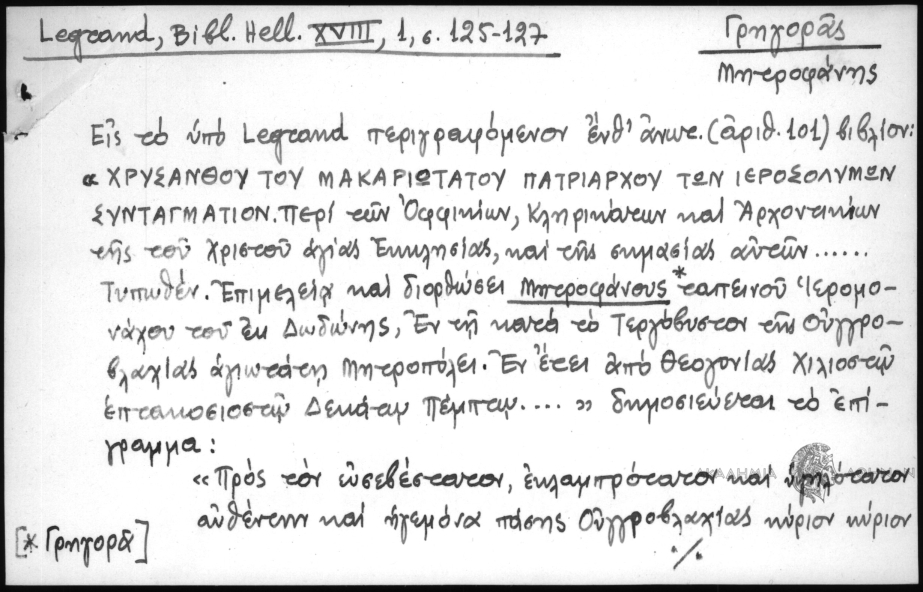 Legrand, Bibl. Hell. XVIII, 1, σ. 125-127
Γρηγορᾶς
Μητροφάνης
Εἰς τὸ ὑπὸ Legrand περιγραφόμενον ἔνθ' ἄνωτ. (ἀριθ. 101) βιβλίον:
« ΧΡΥΣΑΝΘΟΥ ΤΟΥ ΜΑΚΑΡΙΩΤΑΤΟΥ ΠΑΤΡΙΑΡΧΟΥ ΤΩΝ ΙΕΡΟΣΟΛΥΜΩΝ
ΣΥΝΤΑΓΜΑΤΙΟΝ. Περί τῶν Ὀφφικίων, Κληρικάτων καὶ Ἀρχοντικίων
τῆς τοῦ Χριστοῦ ἁγίας Ἐκκλησίας, καὶ τῆς σημασίας αὐτῶν ......
Τυπωθέν. Ἐπιμελείᾳ καὶ διορθώσει Μητροφάνους* ταπεινοῦ Ἱερομο-
νάχου τοῦ ἐκ Δωδώνης, Ἐν τῇ κατὰ τὸ Τεργόβυστον τῆς Οὐγγρο-
βλαχίας ἁγιωτάτῃ Μητροπόλει. Ἐν ἔτει ἀπὸ Θεογονίας Χιλιοστῷ
ἑπτακοσιοστῷ Δεκάτῳ Πέμπτῳ.... » δημοσιεύεται τὸ ἐπί-
γραμμα:
« Πρὸς τὸν εὐσεβέστατον, ἐκλαμπρότατον καὶ ὑψηλότατον
αὐθέντην καὶ ἡγεμόνα πάσης Οὐγγροβλαχίας κύριον κύριον
[* Γρηγορᾶ]
./.
ΑΚΑΔΗΜΙΑ ΑΘΗΝΩΝ